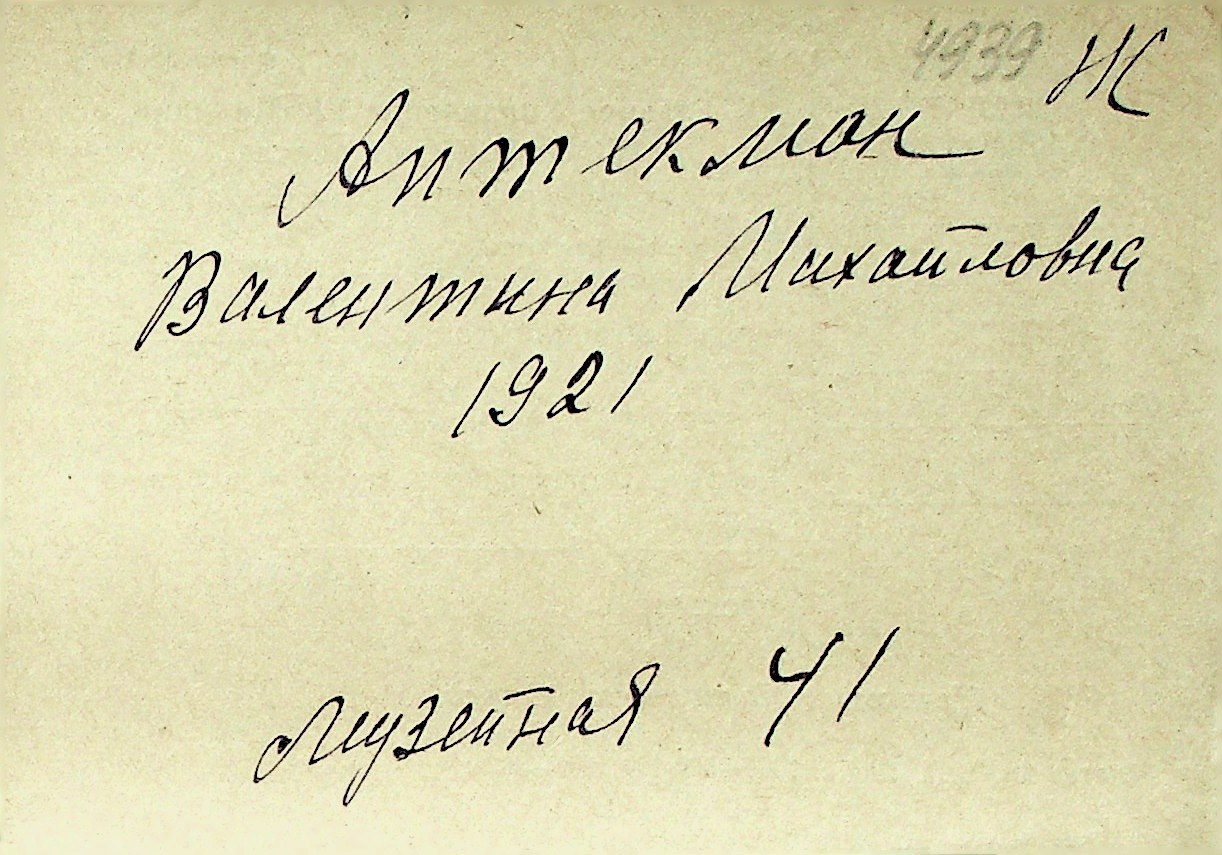 4939 Ж
Аптекман
Валентина Михайловна
1921
Музейная 41